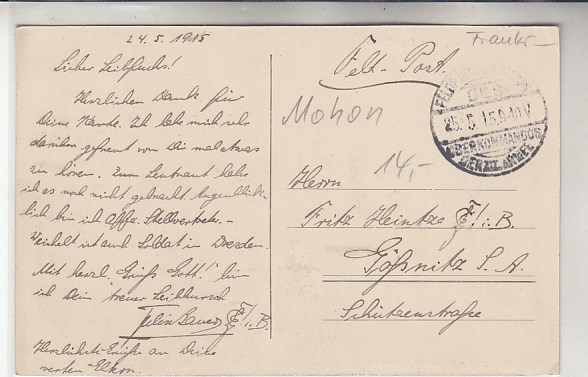 24.5.1915
Lieber Leibfuchs!
Herzlichen Dank für
Deine Karte. Ich habe mich sehr
darüber gefreut von Dir mal etwas
zu hören. Zum Leutnant habe
ich es noch nicht gebracht Augenblick-
lich bin ich Offz. Stellvertreter. –
Weinhelt ist auch Soldat in Dresden.
Mit herzl. Grüß Gott! bin
ich Dein treuer Leibbursch
Felix Bauer i. B.
Herzlichste Grüße an Deine
werten Eltern.
Frankr –
Feld-Post.
Mohon
14,-
DES
25. 5. 15. 8-10 V
OBERKOMMANDOS
DER III. ARMEE
Herrn
Fritz Heintze i. B.
Gößnitz S. A.
Schützenstraße